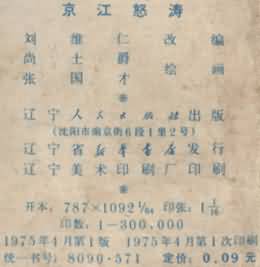 京江怒涛
刘维仁 改编
尚士爵
张国才 绘画
辽宁人民出版社出版
(沈阳市南京街6段1里2号)
辽宁省新华书店发行
辽宁美术印刷厂印刷
开本: 787×1092 1/64 印张: 1 3/16
印数: 1—300,000
1975年4月第1版 1975年4月第1次印刷
统一书号: 8090·571 定价: 0.09元